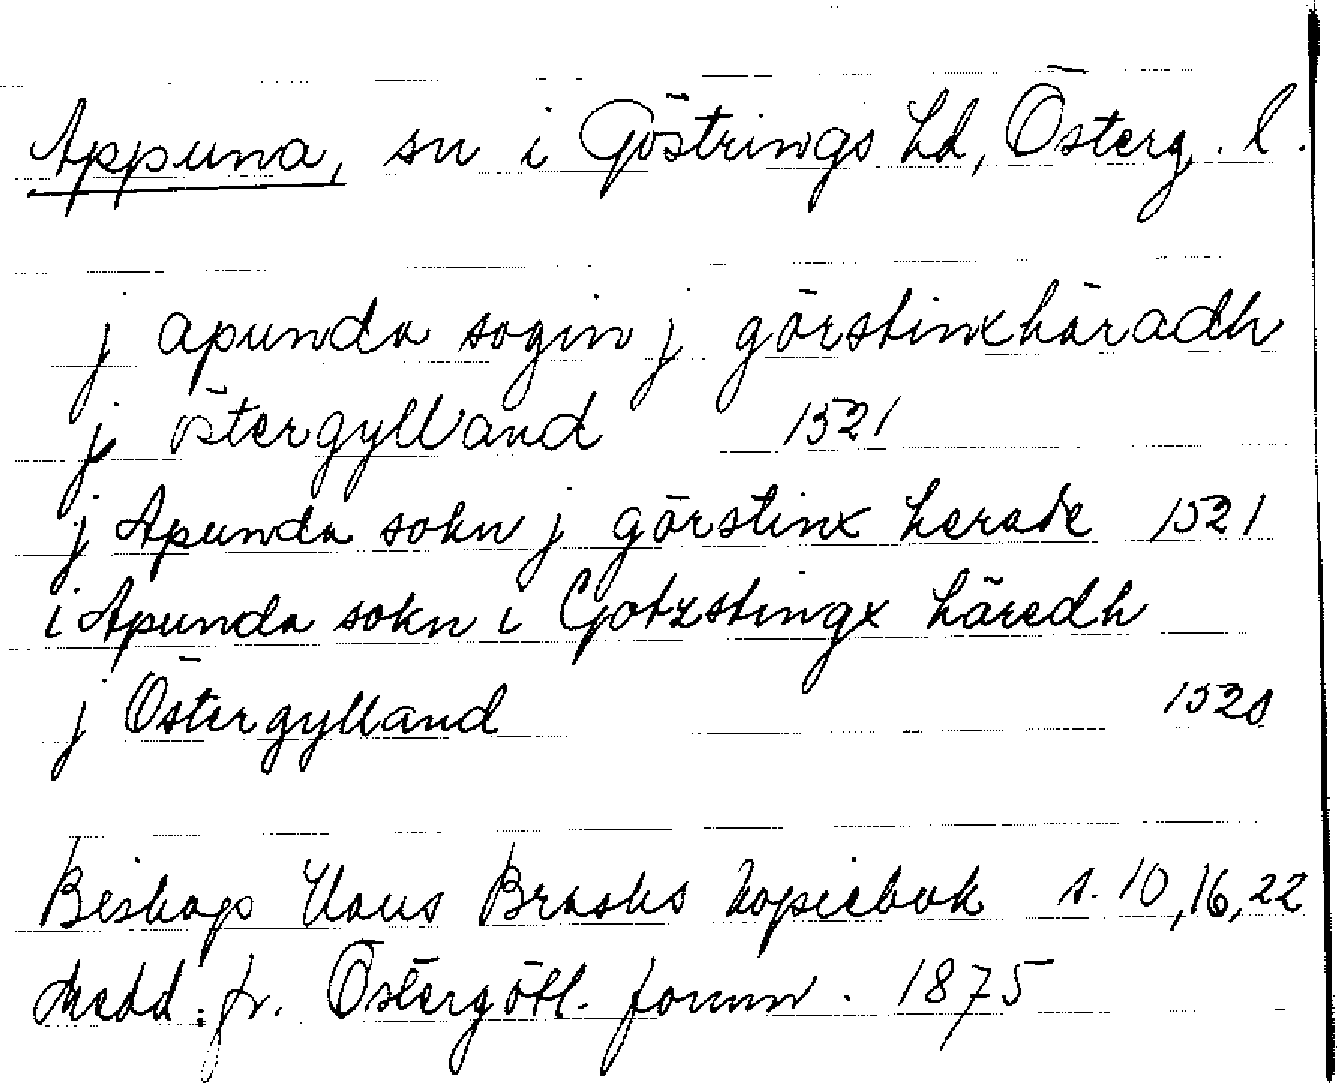 Appuna, sn i Göstrings hd, Österg. l.
j apunda sogin j görstinxhäradh
j östergylland 1521
j Apunda sokn j görstinx herade 1521
i Apunda sokn i Gotzstingx häredh
j Östergylland
Biskop Hans Brasks kopiebok s. 10, 16, 22
Medd. fr. Östergötl. fornm. 1875